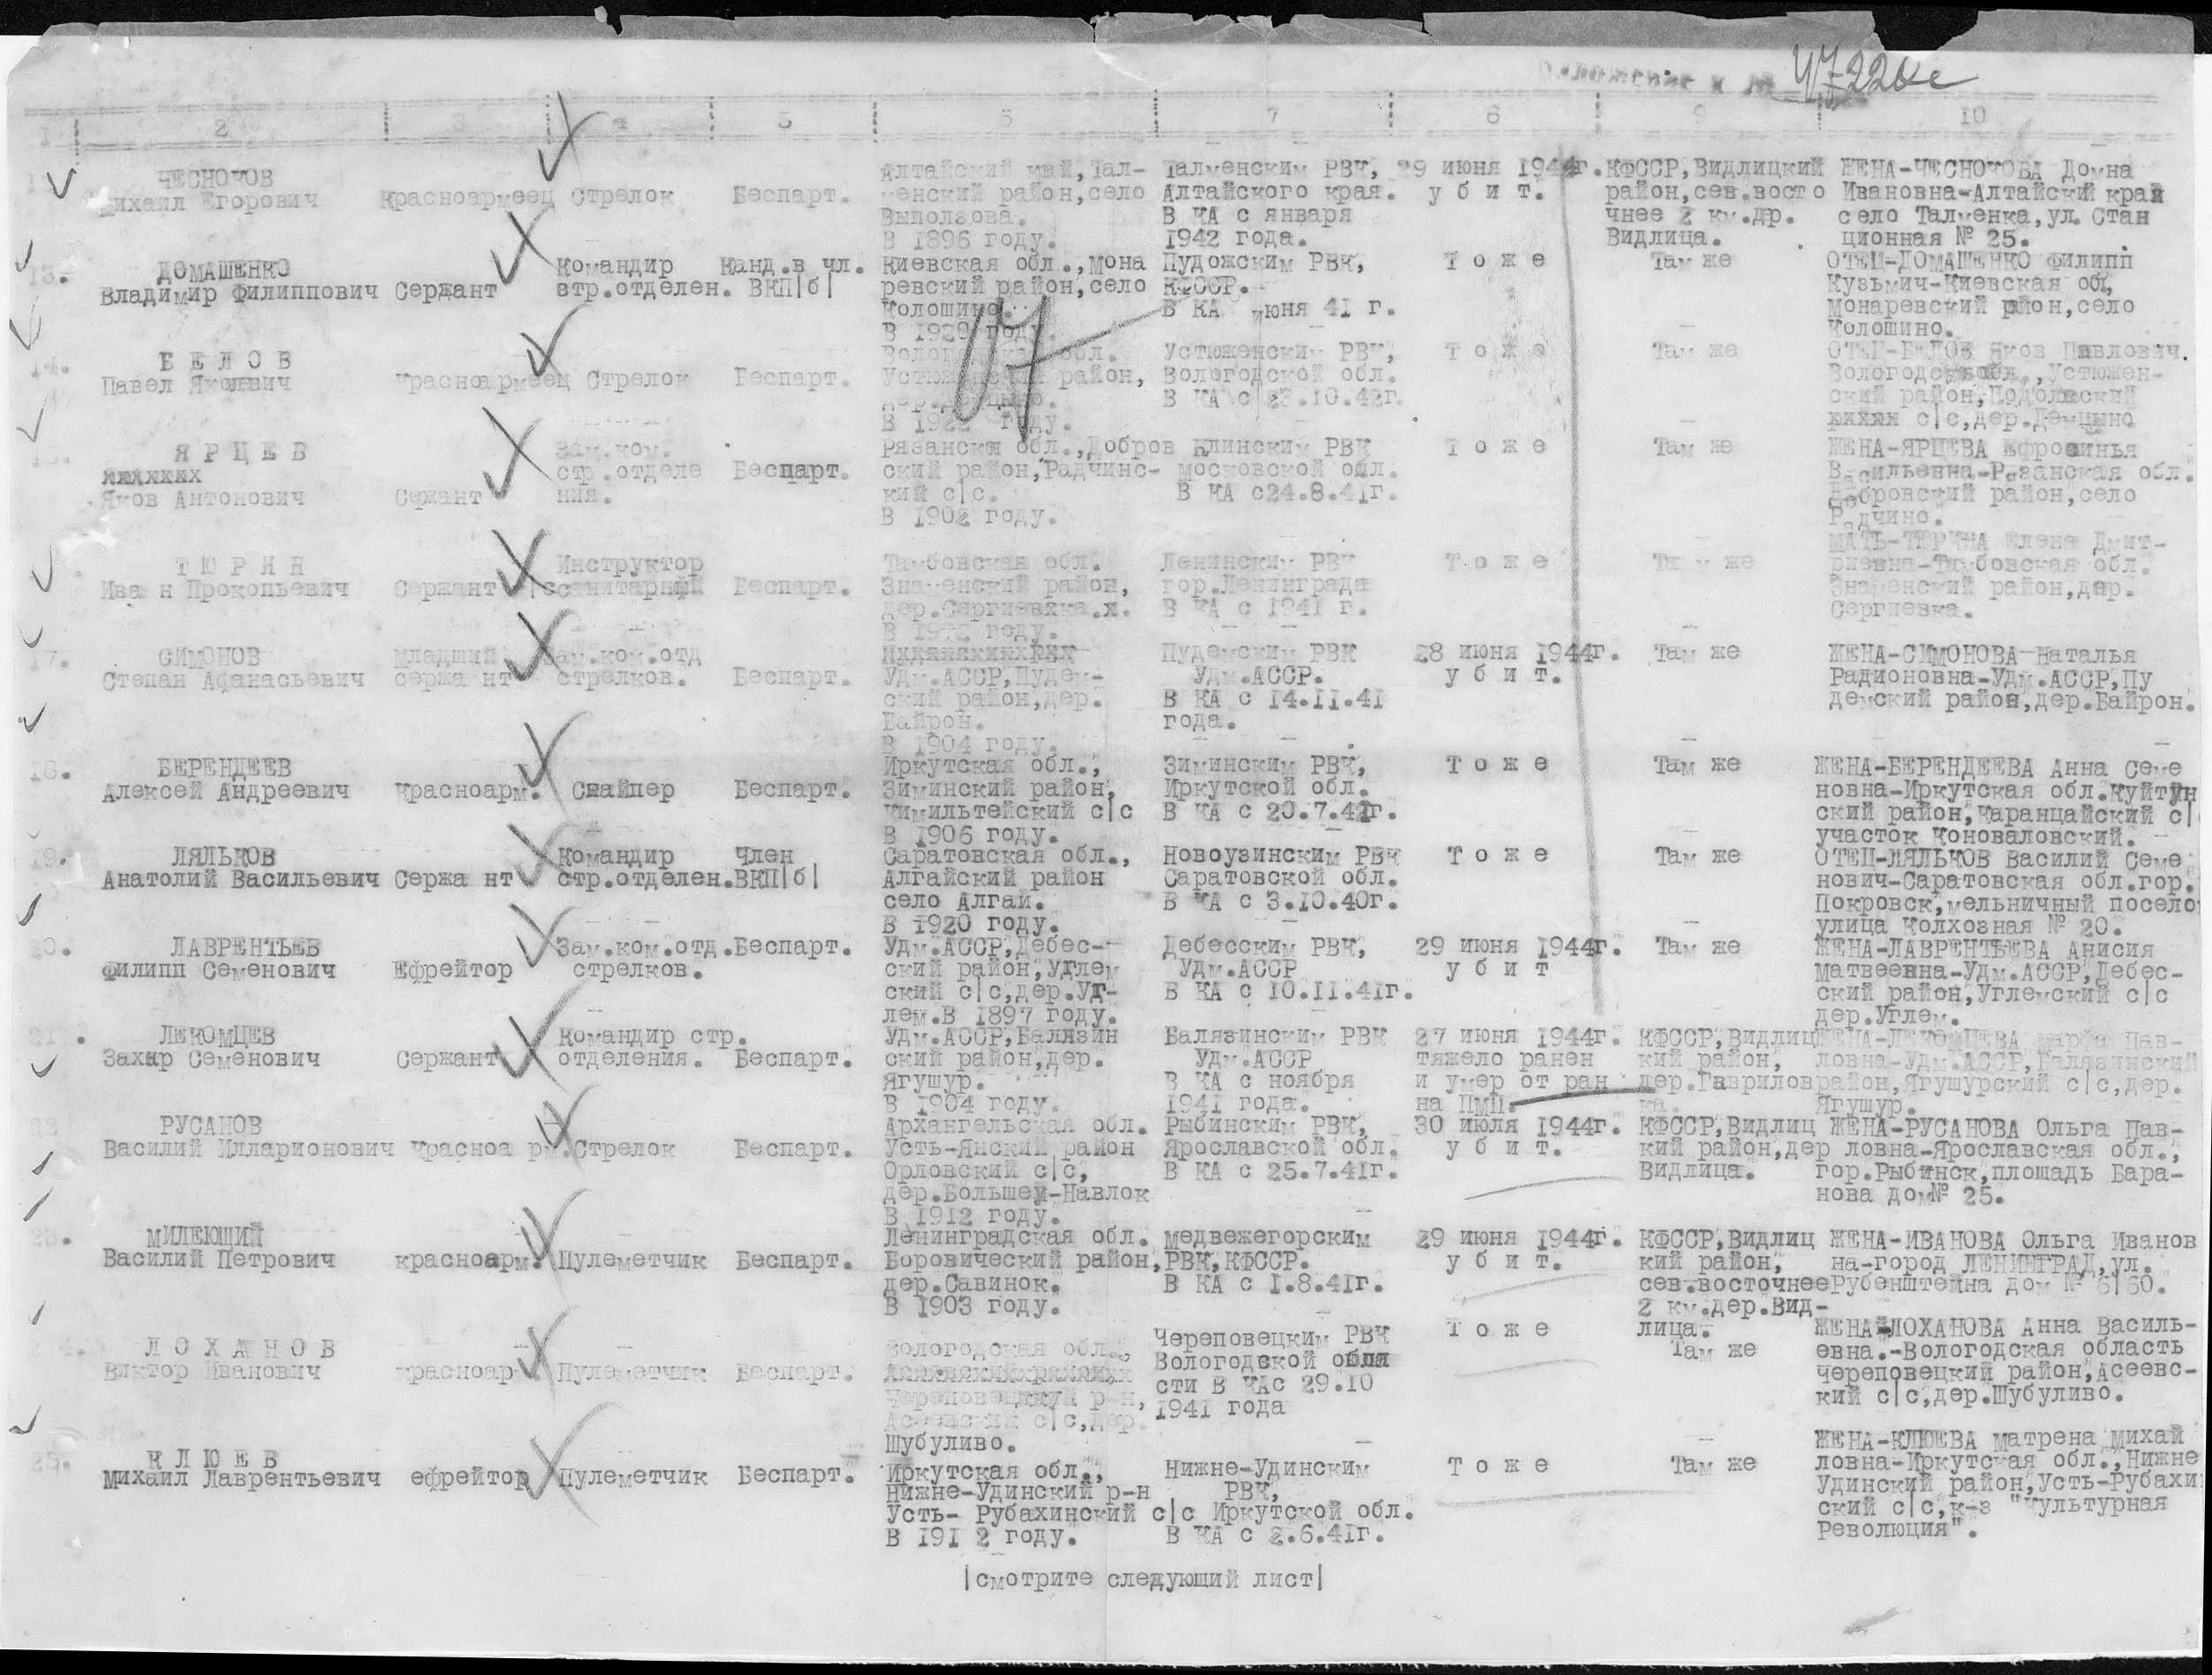 47226с
1 2 3 4 5 6 7 8 9 10
ЧЕСНОКОВ
Михаил Егорович Красноармеец Стрелок Беспарт. Алтайский край, Тал-менский район,село Выползова. В 1896 году. Талменским РВК, Алтайского края. В КА с января 1942 года. 29 июня 1944г. у б и т. КФССР,Видлицкий район,сев.восто чнее 2 км.др. Видлица. ЖЕНА-ЧЕСНОКОВА Домна Ивановна-Алтайский край село Талменка,ул. Стан ционная № 25.
13. ДОМАШЕНКО
Владимир Филиппович Сержант Командир стр.отделен. Канд.в чл. ВКП|б| Киевская обл.,Мона ревский район,село Колошино. В 1929 году. Пудожским РВК, КФССР. В КА июня 41 г. Т о ж е Там же ОТЕЦ-ДОМАШЕНКО Филипп Кузьмич-Киевская об, Монаревский район,село Колошино.
14. Б Е Л О В
Павел Яковевич Красноармеец Стрелок Беспарт. обл. район, В 1922 году. Устюженским РВК, Вологодской обл. В КА с 23.10.42г. Т о ж е Там же ОТЕЦ-БЕЛОВ Яков Павлович. Вологодс обл.,Устюжен-ский район, с|с,дер.Демцыно
Я Р Ц Е В
Яков Антонович Сержант Зам.ком. стр.отделе ния. Беспарт. Рязанская обл.,Добров ский район,Радчинс-кий с|с. В 1902 году. Клинским РВК Московской обл. В КА с24.8.41г. Т о ж е Там же ЖЕНА-ЯРЦЕВА Ефросинья Васильевна-Рязанская обл. Добровский район,село Радчино.
Т Ю Р И Н
Ива н Прокопьевич Сержант Инструктор санитарный Беспарт. Тамбовская обл. Знаменский район, В году. Ленинским РВК гор.Ленинграда В КА с 1941 г. Т о ж е Та м же МАТЬ-ТЮРИНА Елена Дмит-риевна-Тамбовская обл. Знаменский район,дер. Сергиевка.
17. СИМОНОВ
Степан Афанасьевич младший сержа нт Зам.ком.отд стрелков. Беспарт. Удм.АССР,Пудем-ский район,дер. Байрон. В 1904 году. Пудемским РВК Удм.АССР. В КА с 14.11.41 года. 28 июня 1944г. у б и т. Там же ЖЕНА-СИМОНОВА-Наталья Радионовна-Удм.АССР,Пу демский район,дер.Байрон.
18. БЕРЕНДЕЕВ
Алексей Андреевич Красноарм. Снайпер Беспарт. Иркутская обл., Зиминский район, Кимильтейский с|с В 1906 году. Зиминским РВК, Иркутской обл. В КА с 20.7.42г. Т о ж е Там же ЖЕНА-БЕРЕНДЕЕВА Анна Семе новна-Иркутская обл.Куйтун ский район,Каранцайский с| участок Коноваловский.
19. ЛЯЛЬКОВ
Анатолий Васильевич Сержа нт Командир стр.отделен. Член ВКП|б| Саратовская обл., Алгайский район село Алгай. В 1920 году. Новоузинским РВК Саратовской обл. В КА с 3.10.40г. Т о ж е Там же ОТЕЦ-ЛЯЛЬКОВ Василий Семе нович-Саратовская обл.гор. Покровск,мельничный посело улица Колхозная № 20.
20. ЛАВРЕНТЬЕВ
Филипп Семенович Ефрейтор Зам.ком.отд. стрелков. Беспарт. Удм.АССР,Дебес-ский район,Углем ский с|с,дер.Уг-лем.В 1897 году. Дебесским РВК, Удм.АССР В КА с 10.11.41г. 29 июня 1944г. у б и т Там же ЖЕНА-ЛАВРЕНТЬЕВА Анисия Матвеевна-Удм.АССР,Дебес-ский район,Углемский с|с дер.Углем.
21. ЛЕКОМЦЕВ
Захар Семенович Сержант Командир стр. отделения. Беспарт. Удм.АССР,Балязин ский район,дер. Ягушур. В 1904 году. Балязинским РВК Удм.АССР В КА с ноября 1941 года. 27 июня 1944г. тяжело ранен и умер от ран на ПМП. КФССР,Видлиц кий район, дер.Гавриловка. ЖЕНА-ЛЕКОМЦЕВА Марфа Пав-ловна-Удм.АССР,Балязинский район,Ягушурский с|с,дер. Ягушур.
22. РУСАНОВ
Василий Илларионович Красноа рм. Стрелок Беспарт. Архангельская обл. Усть-Янский район Орловский с|с, дер.Большей-Навлок В 1912 году. Рыбинским РВК, Ярославской обл. В КА с 25.7.41г. 30 июля 1944г. у б и т. КФССР,Видлиц кий район,дер Видлица. ЖЕНА-РУСАНОВА Ольга Пав-ловна-Ярославская обл., гор.Рыбинск,площадь Бара-нова дом№ 25.
23. МИЛЕЮЩИЙ
Василий Петрович красноарм. Пулеметчик Беспарт. Ленинградская обл. Боровический район, дер.Савинок. В 1903 году. Медвежегорским РВК,КФССР. В КА с 1.8.41г. 29 июня 1944г. у б и т. КФССР,Видлиц кий район, сев.восточнее 2 км.дер.Вид-лица. ЖЕНА-ИВАНОВА Ольга Иванов на-город ЛЕНИНГРАД,ул. Рубенштейна дом № 6|60.
Л О Х А Н О В
Виктор Иванович красноар Пулеметчик Беспарт. Вологодская обл., Череповецкий р-н, Асеевский с|с,дер. Шубуливо. Череповецким РВК Вологодской обла сти В КАс 29.10 1941 года Т о ж е Там же ЖЕНА-ЛОХАНОВА Анна Василь-евна.-Вологодская область Череповецкий район,Асеевс-кий с|с,дер.Шубуливо.
25. К Л Ю Е В
Михаил Лаврентьевич ефрейтор Пулеметчик Беспарт. Иркутская обл., Нижне-Удинский р-н Усть- Рубахинский с|с В 191 2 году. Нижне-Удинским РВК, Иркутской обл. В КА с 2.6.41г. Т о ж е Там же ЖЕНА-КЛЮЕВА Матрена Михай ловна-Иркутская обл.,Нижне Удинский район,Усть-Рубахи ский с|с,к-з "Культурная Революция".
|смотрите следующий лист|